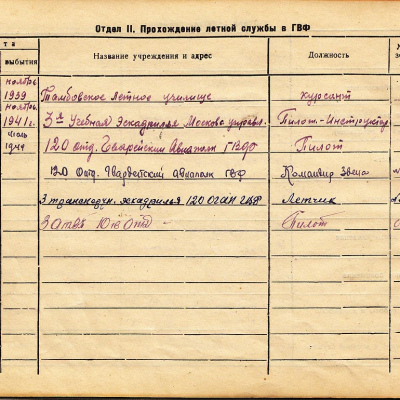 Отдел II. Прохождение летной службы в ГВФ
та
выбытия
Название учреждения и адрес
Должность
ноябрь
1939
Тамбовское летное училище
курсант
ноябрь
1941 г.
3-я Учебная Эскадрилья Московс. управл.
Пилот-Инструктор
июль
120 отд. Гварейский Авиаполк ГВФ
Пилот
120 Отд. Гвардейский авиаполк ГВФ
Командир Звена
эскадрилья 120 ОГАП ГВФ
Летчик
Пилот